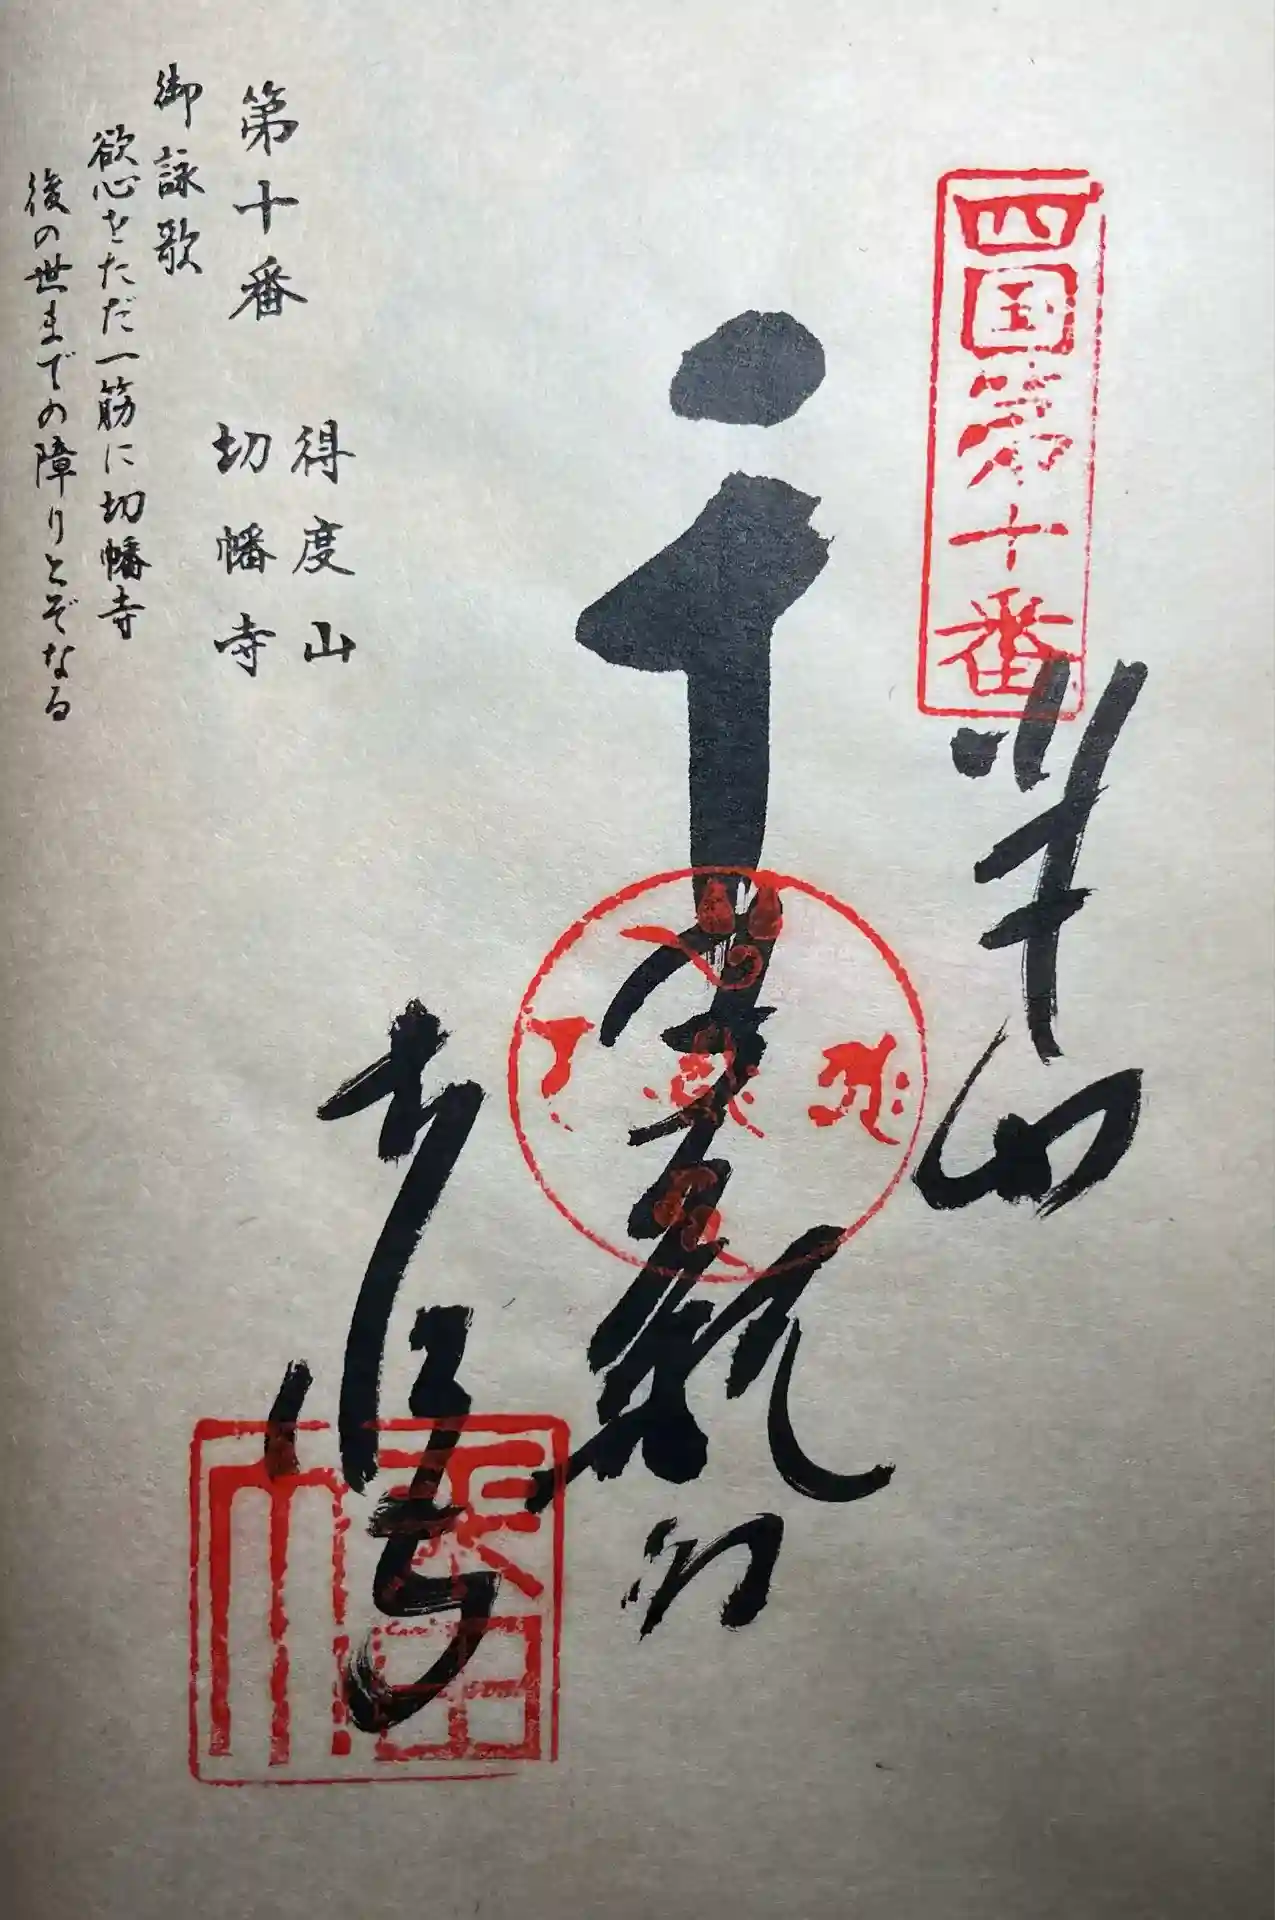 四国第十番
奉納
千手観
得度山
第十番 切幡寺
御詠歌
欲心をただ一筋に切幡寺
後の世までの障りとぞなる